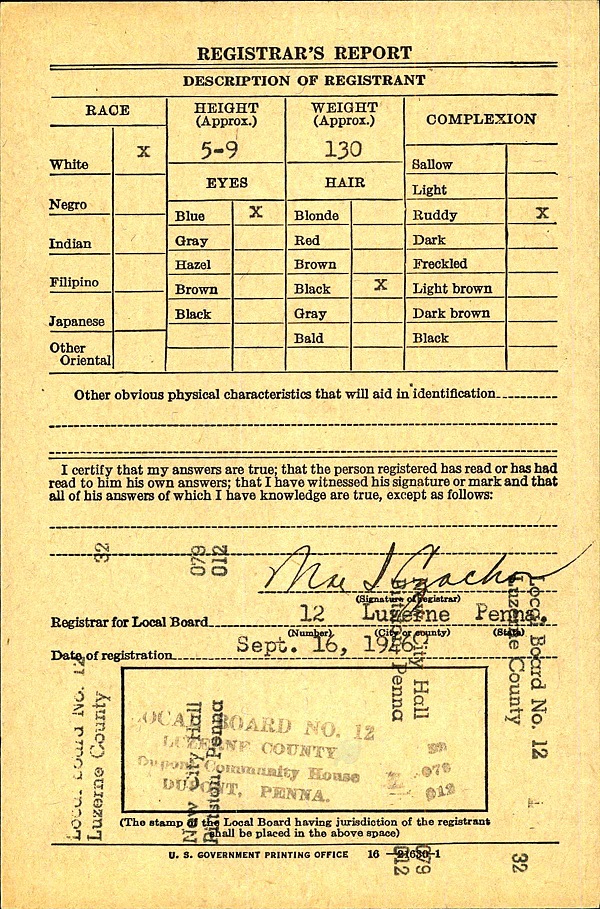 REGISTRAR'S REPORT
DESCRIPTION OF REGISTRANT
RACE
HEIGHT (Approx.)
WEIGHT (Approx.)
COMPLEXION
White X
5-9
130
Sallow
Light
EYES
HAIR
Negro
Blue X
Blonde
Ruddy X
Indian
Gray
Red
Dark
Hazel
Brown
Freckled
Filipino
Brown
Black X
Light brown
Japanese
Black
Gray
Dark brown
Other Oriental
Bald
Black
Other obvious physical characteristics that will aid in identification
I certify that my answers are true; that the person registered has read or has had
read to him his own answers; that I have witnessed his signature or mark and that
all of his answers of which I have knowledge are true, except as follows:
32
079
012
Mae
(Signature of registrar)
Registrar for Local Board 12 Luzerne Penna.
(Number) (City or county) (State)
Date of registration Sept. 16, 1946
LOCAL BOARD NO. 12
LUZERNE COUNTY
Dupont Community House
DUPONT, PENNA.
32
079
012
Local Board No. 12
Luzerne County
New City Hall
Pittston, Penna
New City Hall
Pittston, Penna
Local Board No. 12
Luzerne County
(The stamp of the Local Board having jurisdiction of the registrant
shall be placed in the above space)
U. S. GOVERNMENT PRINTING OFFICE 16—21630-1
079
012
32